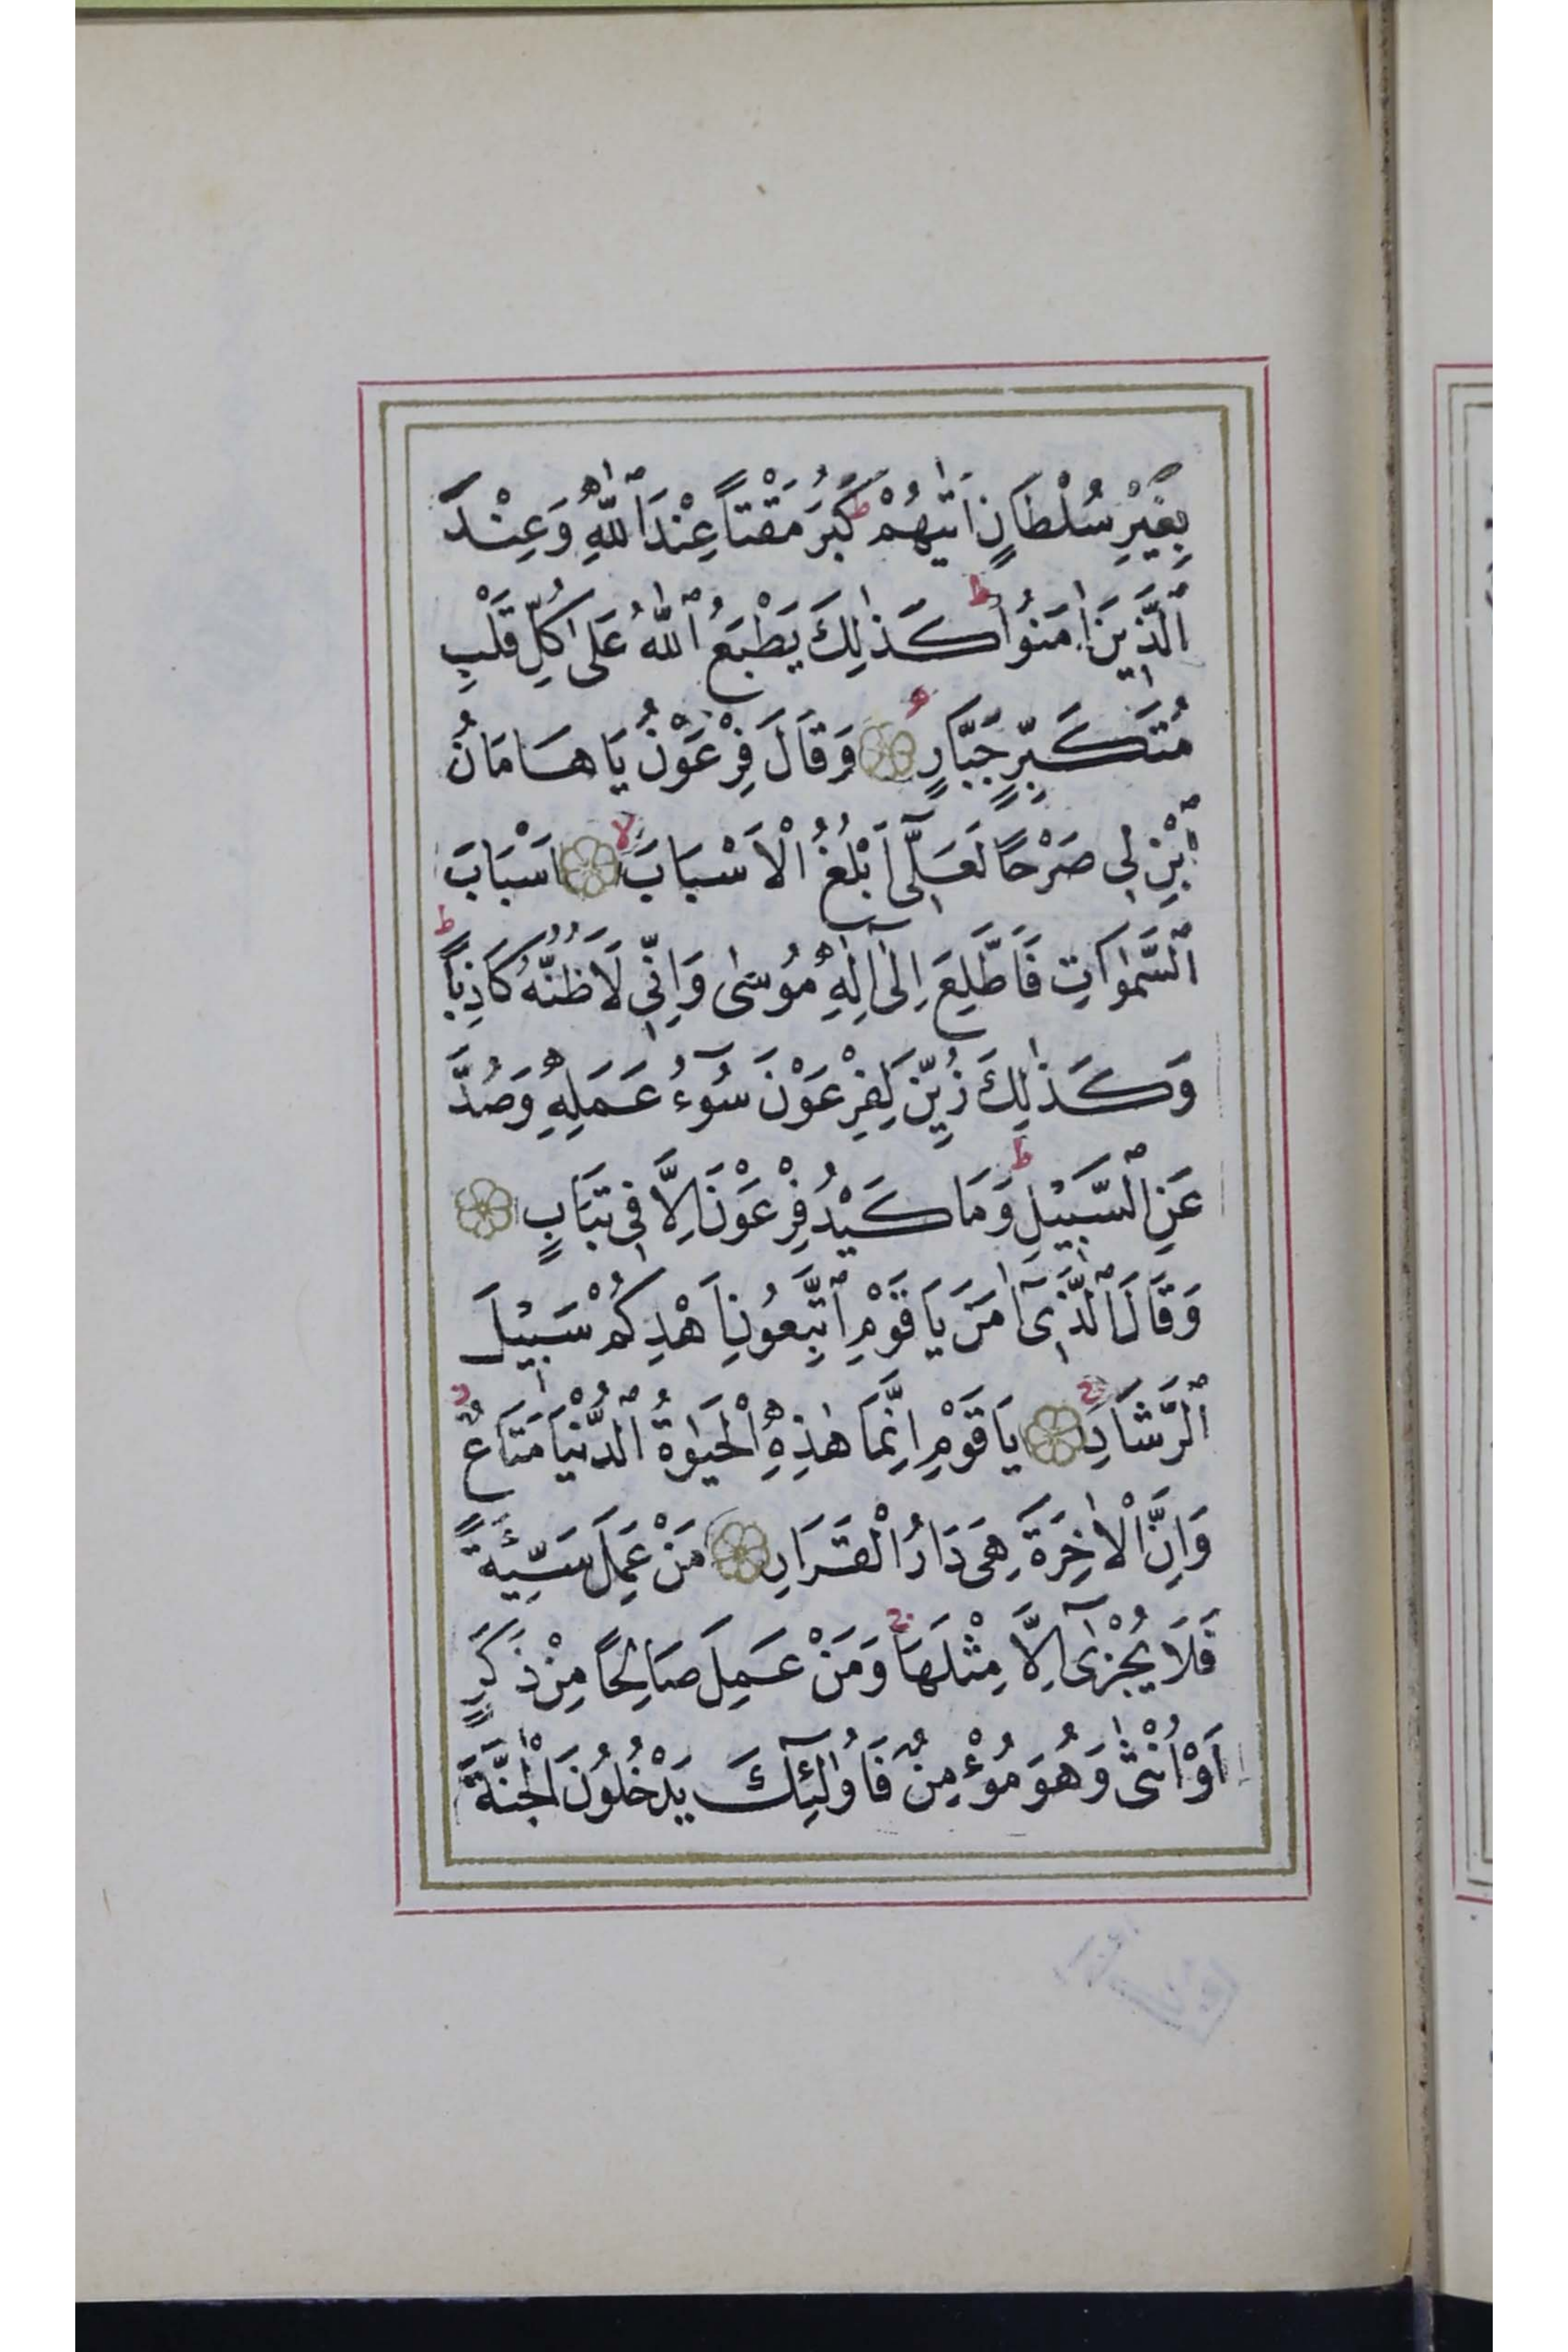 بِغَيْرِ سُلْطَانٍ اَتٰيهُمْ ط كَبُرَ مَقْتاً عِنْدَ ٱللّٰهِ وَعِنْدَ
ٱلَّذِينَ اٰمَنُوا ط كَذٰلِكَ يَطْبَعُ ٱللّٰهُ عَلٰى كُلِّ قَلْبِ
مُتَكَبِّرٍ جَبَّارٍ وَقَالَ فِرْعَوْنُ يَا هَامَانُ
ٱبْنِ لِى صَرْحًا لَعَلِّىٓ اَبْلُغُ الْاَسْبَابَ لا اَسْبَابَ
ٱلسَّمٰوَاتِ فَاَطَّلِعَ اِلٰٓى اِلٰهِ مُوسٰى وَاِنِّى لَاَظُنُّهُ كَاذِباً ط
وَكَذٰلِكَ زُيِّنَ لِفِرْعَوْنَ سُوٓءُ عَمَلِهِ وَصُدَّ
عَنِ ٱلسَّبِيْلِ ط وَمَا كَيْدُ فِرْعَوْنَ اِلَّا فِى تَبَابٍ
وَقَالَ ٱلَّذِىٓ اٰمَنَ يَا قَوْمِ ٱتَّبِعُونِ اَهْدِكُمْ سَبِيْلَ
ٱلرَّشَادِ ج يَا قَوْمِ اِنَّمَا هٰذِهِ الْحَيٰوةُ ٱلدُّنْيَا مَتَاعٌ
وَاِنَّ الْاٰخِرَةَ هِىَ دَارُ الْقَرَارِ مَنْ عَمِلَ سَيِّئَةً
فَلَا يُجْزٰٓى اِلَّا مِثْلَهَا ج وَمَنْ عَمِلَ صَالِحًا مِنْ ذَكَرٍ
اَوْ اُنْثٰى وَهُوَ مُؤْمِنٌ فَاُولٰٓئِكَ يَدْخُلُونَ الْجَنَّةَ